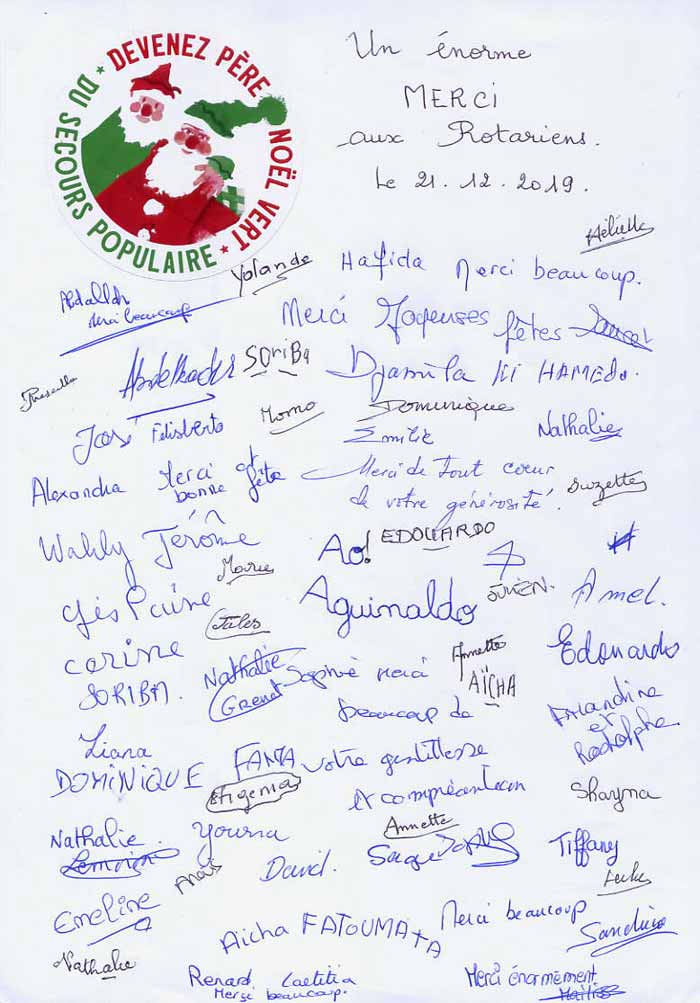 DEVENEZ PÈRE NOËL VERT
DU SECOURS POPULAIRE
Un énorme
MERCI
aux Rotariens.
Le 21.12.2019.
Yolande
Hafida Merci beaucoup.
Abdallah
Merci beaucoup
Merci Joyeuses fêtes
Priscilla
Abdelkader
SORIBA
Djamila
HAMEDO.
José
Felisberto
Momo
Dominique
Emilie
Nathalie
Alexandra
Merci et
bonne fête
Merci de tout coeur
de votre générosité.
Suzette
Wahly Jérôme
Marie
Ao!
EDOUARDO
Aguinaldo
Amel.
Jules
corine
SORIBA.
Nathalie
Grenet
Sophie merci
beaucoup de
votre gentillesse
Annette
AÏCHA
Edouardo
Amandine
et
Rodolphe
Liana
DOMINIQUE
FANTA
Shayna
Nathalie
Lemoine
Youma
Annette
Anaïs
David.
Tiffany
Emeline
Aicha FATOUMATA
Merci beaucoup
Sandrine
Nathalie
Renard Laetitia
Merci beaucoup.
Merci énormément